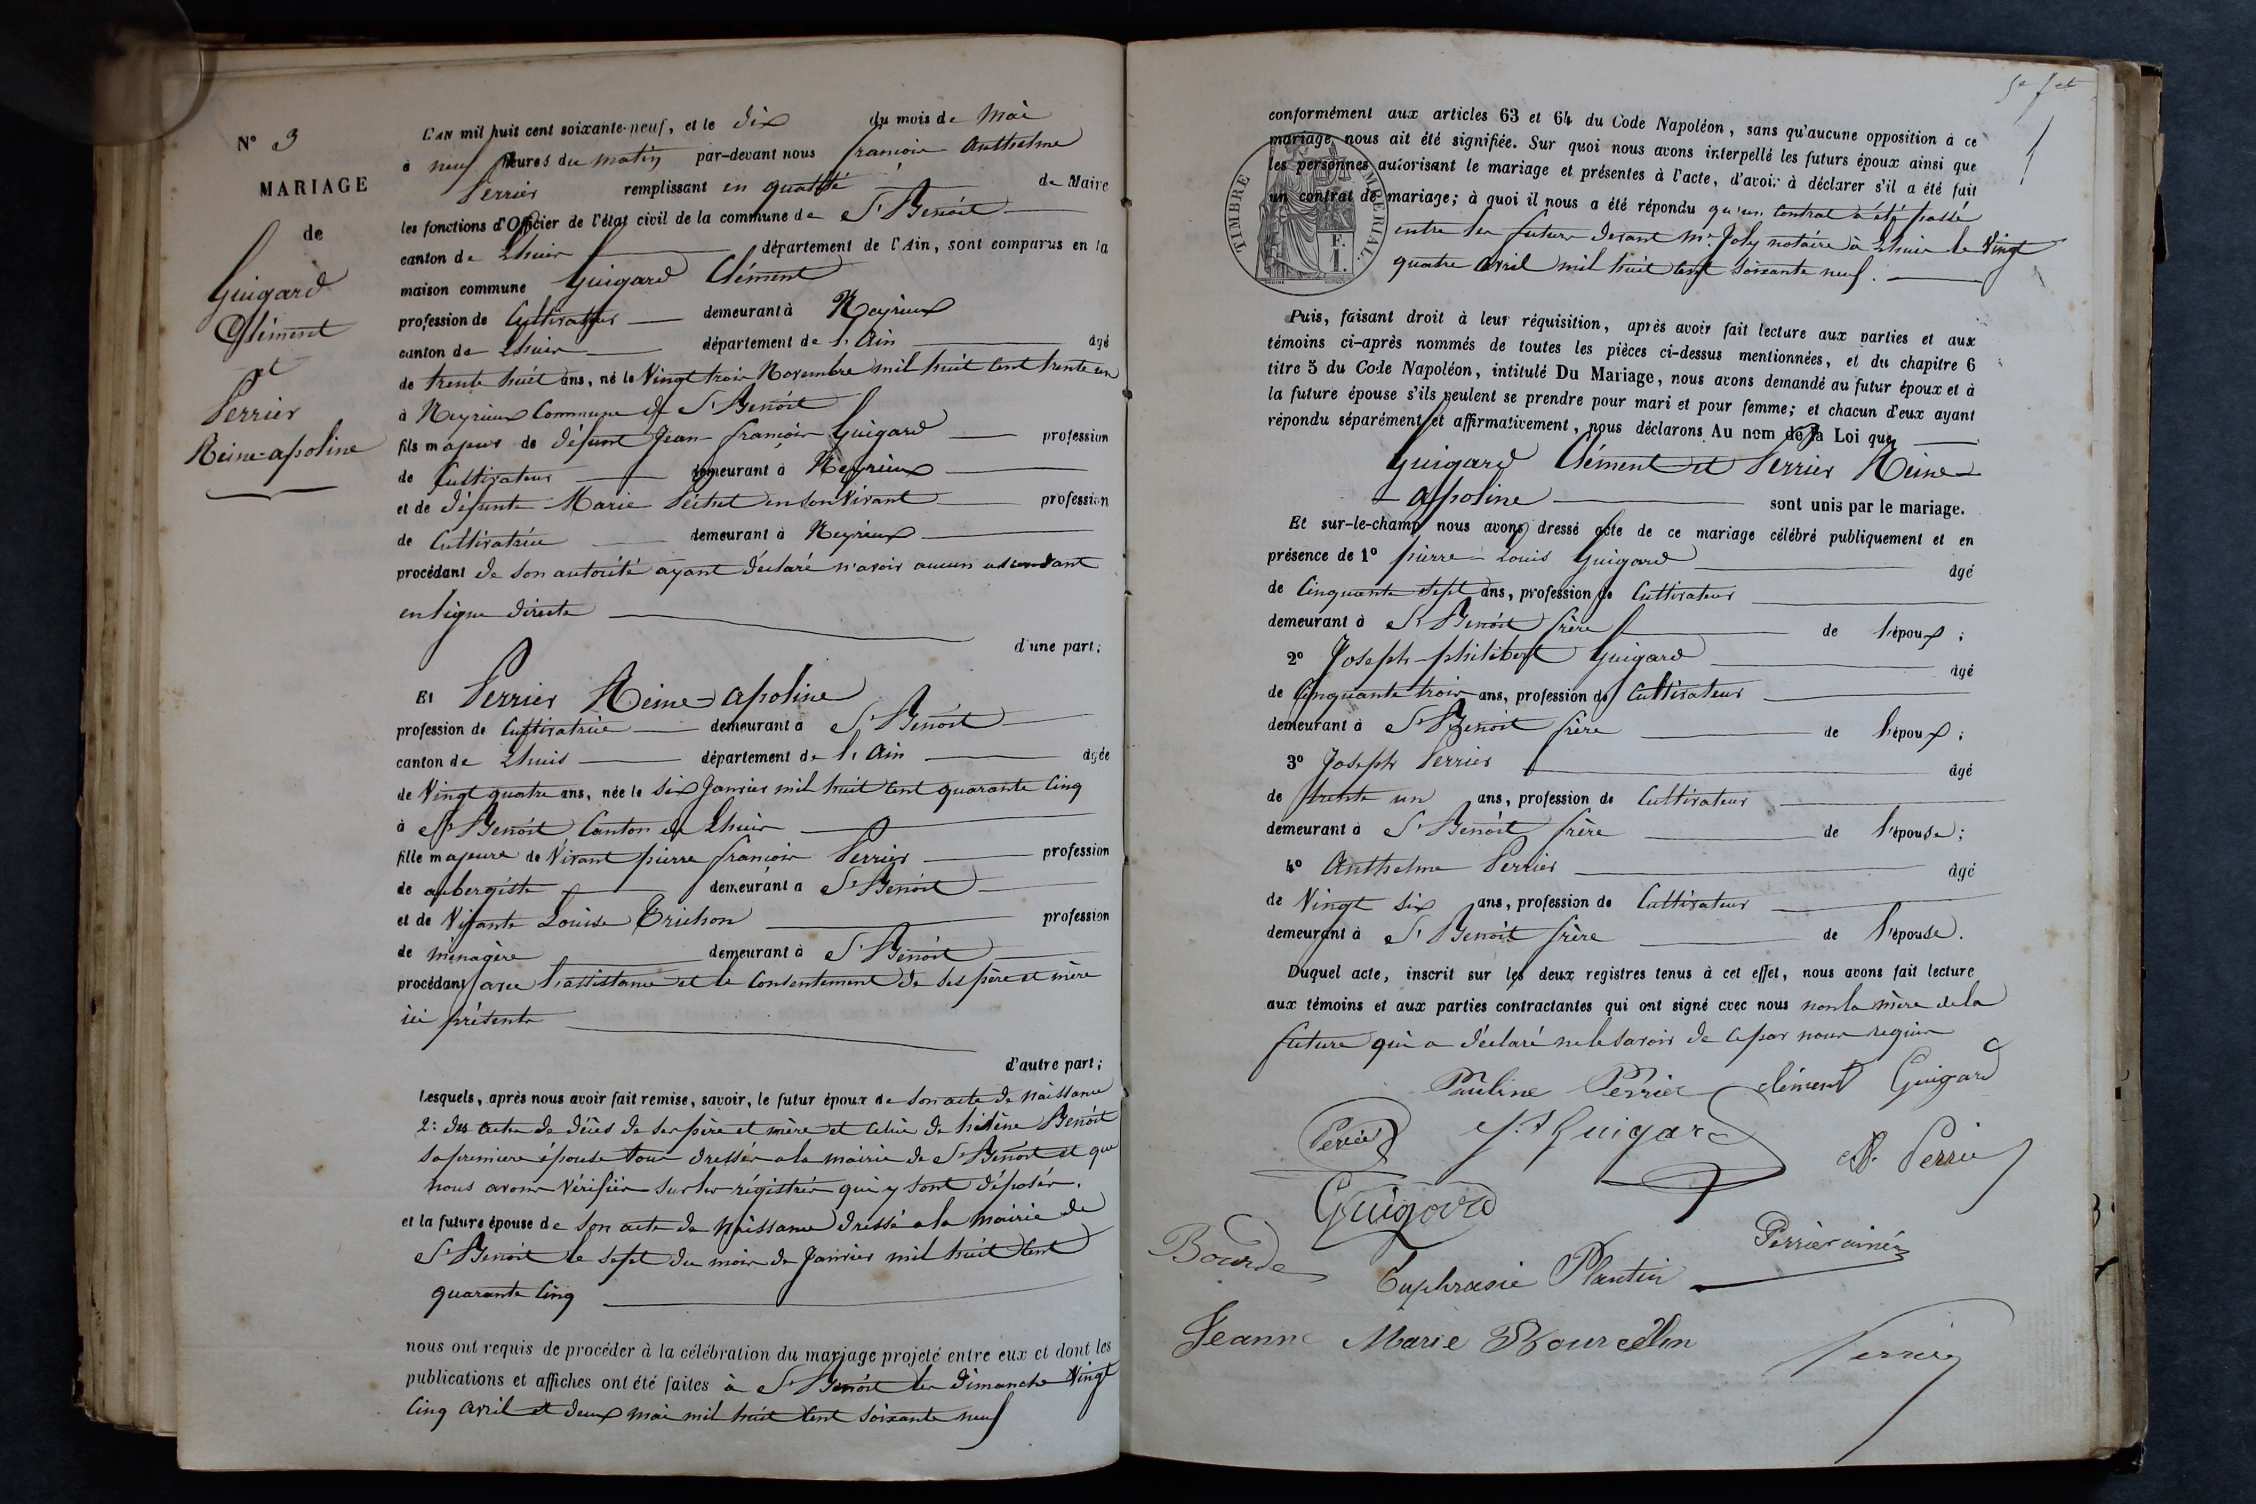 N° 3
MARIAGE
de
Guigard
Clément
et
Perrier
Reine-apoline
L'AN mil huit cent soixante-neuf, et le dix du mois de Mai
à neuf heures du matin par-devant nous françois Anthelme
Perrier remplissant en qualité de Maire
les fonctions d'Officier de l'état civil de la commune de St Benoit
canton de Lhuis département de l'Ain, sont comparus en la
maison commune Guigard Clément
profession de Cultivateur demeurant à Neyrieux
canton de Lhuis département de l'Ain âgé
de trente huit ans, né le Vingt trois Novembre mil huit cent trente un
à Neyrieux Commune de St Benoit
fils majeur de défunt Jean-françois Guigard profession
de Cultivateur demeurant à Neyrieux
et de défunte Marie en son vivant profession
de Cultivatrice demeurant à Neyrieux
procédant de son autorité ayant déclaré n'avoir aucun ascendant
en ligne directe
d'une part;
Et Perrier Reine-apoline
profession de Cultivatrice demeurant à St Benoit
canton de Lhuis département de l'Ain âgée
de Vingt quatre ans, née le six Janvier mil huit cent quarante cinq
à St Benoit, Canton de Lhuis
fille majeure de Vivant pierre françois Perrier profession
de aubergiste demeurant à St Benoit
et de Vivante Louise Trichon profession
de ménagère demeurant à St Benoit
procédant avec l'assistance et le consentement de ses père et mère
ici présents
d'autre part;
Lesquels, après nous avoir fait remise, savoir, le futur époux de son acte de naissance
2: des actes de décès de ses père et mère et celui de hélène Benoit
sa première épouse tous dressés à la mairie de St Benoit et que
nous avons vérifiés sur les régistres qui y sont déposés.
et la future épouse de son acte de Naissance dressé à la mairie de
St Benoit le sept du mois de Janvier mil huit cent
quarante cinq
nous ont requis de procéder à la célébration du mariage projeté entre eux et dont les
publications et affiches ont été faites à St Benoit les dimanche Vingt
cinq avril et deux mai mil huit cent soixante neuf
conformément aux articles 63 et 64 du Code Napoléon, sans qu'aucune opposition à ce
mariage nous ait été signifiée. Sur quoi nous avons interpellé les futurs époux ainsi que
les personnes autorisant le mariage et présentes à l'acte, d'avoir à déclarer s'il a été fait
un contrat de mariage; à quoi il nous a été répondu qu'un Contrat a été passé
entre les futurs devant Me Joly notaire à Lhuis le Vingt
quatre avril mil huit cent soixante neuf.
TIMBRE IMPÉRIAL.
F.
1.
Puis, faisant droit à leur réquisition, après avoir fait lecture aux parties et aux
témoins ci-après nommés de toutes les pièces ci-dessus mentionnées, et du chapitre 6
titre 5 du Code Napoléon, intitulé Du Mariage, nous avons demandé au futur époux et à
la future épouse s'ils veulent se prendre pour mari et pour femme; et chacun d'eux ayant
répondu séparément et affirmativement, nous déclarons Au nom de la Loi que
Guigard Clément et Perrier Reine-
apoline sont unis par le mariage.
Et sur-le-champ nous avons dressé acte de ce mariage célébré publiquement et en
présence de 1° pierre-Louis Guigard âgé
de Cinquante sept ans, profession de Cultivateur
demeurant à St Benoit frère de l'époux;
2° Joseph-philibert Guigard âgé
de Cinquante trois ans, profession de Cultivateur
demeurant à St Benoit frère de l'époux;
3° Joseph Perrier âgé
de trente un ans, profession de Cultivateur
demeurant à St Benoit frère de l'épouse;
4° Anthelme Perrier âgé
de Vingt six ans, profession de Cultivateur
demeurant à St Benoit frère de l'épouse.
Duquel acte, inscrit sur les deux registres tenus à cet effet, nous avons fait lecture
aux témoins et aux parties contractantes qui ont signé avec nous non la mère de la
future qui a déclaré ne le savoir de ce par nous requise
Pauline Perrier clément Guigard
Perrier Guigard A. Perrier
Guigard
Bourde Euphrasie Plantin Perrier ainé
Jeanne Marie Bourcelin Perrier